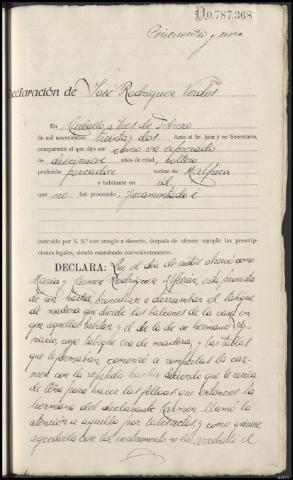 D0.787.368
Cincuenta y uno
Declaración de José Rodríguez Verdes
En Carballo a tres de Febrero
de mil novecientos treinta y dos Ante el Sr. Juez y mi Secretario,
compareció el que dijo ser como va expresado
de diecinueve años de edad, soltero
profesión pescador vecino de Malpica
y habitante en id
que no fué procesado. Juramentado é
instruido por S. S.ª con arreglo a derecho, después de ofrecer cumplir las prescrip-
ciones legales, siendo examinado convenientemente.
DECLARA: Que el día de autos observó como
María y Carmen Rodríguez, esta provista
de un hacha, procedían a derrumbar el tabique
de madera que divide los balcones de la casa en
que aquellas habitan y el de la de su hermano Ig-
nacio, cuyo tabique era de madera, y las tablas
que lo formaban comenzó a romperlas la Car-
men con la repetida hacha diciendo que le servía
de leña para hacer las filloas; que entonces la
hermana del declarante Carmen llamó la
atención a aquella por tales actos, y como quisiese
agredirla con tal instrumento se la arrebató el